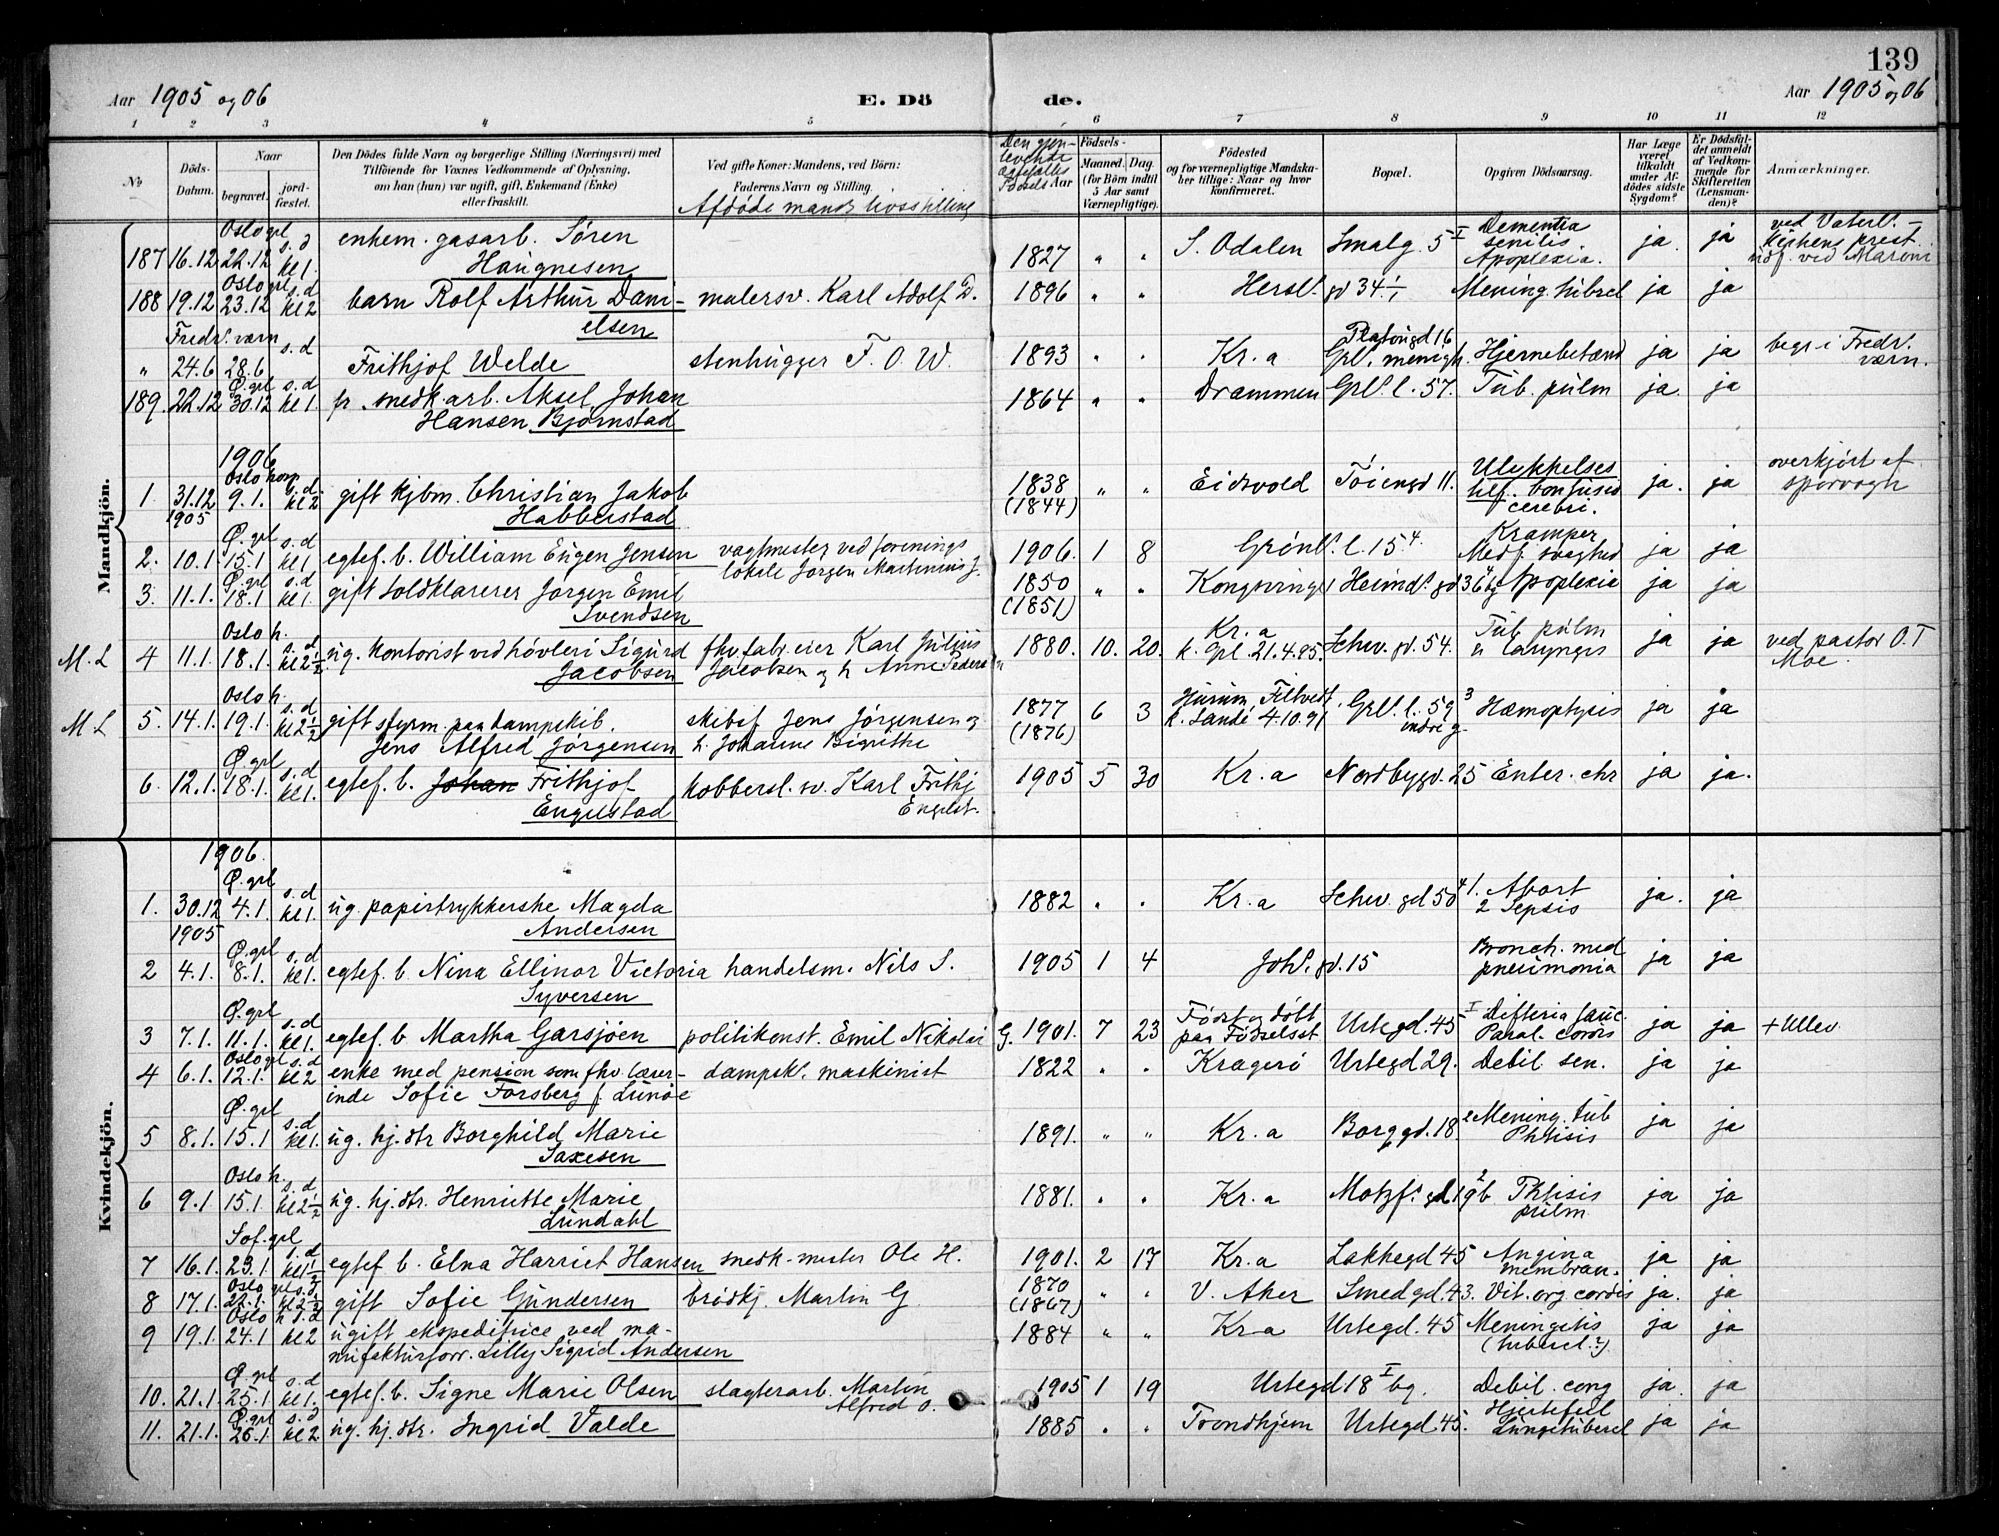 139
Aar 1905 og 06
E. Dö
de.
Aar 1905 og 06
1 2 3 4 5 6 7 8 9 10 11 12
№
Döds-Datum.
Naar
begravet.
jord-fæstet.
Den Dödes fulde Navn og borgerlige Stilling (Næringsvei) med
Tilföiende for Voxnes Vedkommende af Oplysning,
om han (hun) var ugift, gift, Enkemand (Enke)
eller fraskilt.
Ved gifte Koner: Mandens, ved Börn:
Faderens Navn og Stilling.
Afdöde mands livsstilling
Den gjen-
levende
ægtefælles
Födsels Aar
Födsels-
Maaned. Dag.
(for Börn indtil
5 Aar samt
Værnepligtige).
Födested
og for værnepligtige Mandska-
ber tillige: Naar og hvor
konfirmeret.
Bopæl.
Opgiven Dödsaarsag.
Har Læge
været
tilkaldt
under Af-
dödes sidste
Sygdom?
Er Dödsfal-
det anmeldt
af Vedkom-
mende for
Skifteretten
(Lensman-
den)?
Anmærkninger.
Mandkjön.
Oslo grl s. d
187 16.12 22.12 kl 1. enkem. gasarb. Sören
Haugnesen 1827 " " S. Odalen Smalg. 5 I Dementia
senilis
Apoplexia. ja. ja ved Vaterl.-
kirkens prest
Oslo grl s.d
188 19.12 23.12 kl 2 barn Rolf Arthur Dani-
elsen malersv. Karl Adolf D. 1896 " " Hersl. gd 34 Mening. tubrcl ja ja
Fredr. værn
" 24.6 28.6 s.d Frithjof Welde stenhugger F. O. W. 1893 " " Kr.a Platougd 16
Grl. menigh. Hjernebetænd ja ja begr. i Fredr.
værn.
Ø.grl s.d
189. 22.12 30.12 kl 1. fr. snedk. arb. Aksel Johan
Hansen Björnstad 1864 " " Drammen Grl. l. 57. Tub. pulm ja. ja
1906
Oslo s. d
1. 31.12 9.1. kl 2 gift kjbm. Christian Jakob
1905
Habberstad 1838
(1844) " " Eidsvold Töiengd 11. Ulykkelses
tilf. Confusio
cerebri. ja. ja overkjört af
sporvogn
Ø. grl s. d
2. 10.1. 15.1 kl 1. egtef. b. William Eugen Jensen vagtmester ved forenings
lokale Jörgen Martinius J. 1906. 1 8 Grönl. l. 15 4. Kramper
Medf. svaghed ja ja
Ø. grl s. d
3. 11.1. 18.1 kl 1. gift toldklarerer Jörgen Emil
Svendsen 1850
(1851) " " Kongsving. Heimd. gd 36 Apoplexia ja ja
Oslo h. s. d
M. L 4 11.1. 18.1. kl 2½ ug. kontorist ved hövleri Sigurd
Jacobsen fhv. fabr. eier Karl Julius
Jacobsen og h Anne Peders 1880. 10. 20. Kr. a
k. Grl. 21.4.95. Schw. gd. 54. Tub pulm
laryngis ja ja ved pastor O. T
Moe.
Oslo h. s. d
M L 5. 14.1. 19.1. kl 2½ gift styrm. paa dampskib.
Jens Alfred Jörgensen skibsf Jens Jörgensen og
h. Johanne Birgitte 1877
(1876) 6 3 Hurum, Filtvedt
k. Sande 4.10.91 Grl. l. 59 3
indre g. Hæmoptysis ja ja
Ø. grl s. d
6. 12.1. 18.1. kl 1. egtef. b. Johan Frithjof
Engelstad kobbersl. sv. Karl Frithj
Engelst. 1905 5 30 Kr. a Nordbygd. 25 Enter. chr ja ja.
Kvindekjön.
1906.
Ø. grl s. d
1. 30.12 4.1. kl 1. ug. papirtrykkerske Magda
1905
Andersen 1882 " " Kr. a Schw. gd 50 4 1. Abort
2 Sepsis ja. ja
Ø. grl s. d
2 4.1. 8.1. kl 1. egtef. b. Nina Ellinor Victoria
Syversen handelsm. Nils S. 1905 1 4 Joh. gd. 15 Bronch. med
pneumonia ja ja
Ø. grl s. d
3 7.1. 11.1. kl 1. egtef. b Martha Garsjöen politikonst. Emil Nikolai G. 1901. 7 23 Födt og döbt
paa Födselsst Urtegd. 45 I Difteria fauc.
Paral. cordis ja ja + Ullev.
Oslo grl s. d
4 6.1. 12.1. kl 2 enke med pension som fhv. lærer-
inde Sofie Forsberg f. Lunöe dampsk. maskinist 1822 " " Kragerö Urtegd 29. Debil sen. ja ja
Ø. grl s. d
5 8.1. 15.1 kl 1. ug. hj. dtr Borghild Marie
Saxesen 1891. " " Kr. a Borggd. 18 Mening. tub
Phtisis ja ja
Oslo h. s. d
6 9.1 15.1 kl 2½ ug. hj. dtr. Henriette Marie
Lundahl 1881. " " Kr. a Motzf. gd 19 b 2 Phtisis
pulm ja ja
Sof. grl s. d
7 16.1. 23.1 kl 1½ egtef b. Elna Harriet Hansen snedk. mester Ole H. 1901. 2 17 Kr. a Lakkegd 45 Angina
membran. ja ja
Oslo grl s. d.
8 17.1. 22.1. kl 2½ gift Sofie Gundersen brödkj. Martin G 1870
(1867) " " V. Aker Smedgd. 43. Vit. org cordis ja. ja
Oslo h s. d
9 19.1. 24.1 kl 2 ugift ekspeditrice ved ma-
nufakturforr. Lilly Sigrid Andersen 1884 " " Kr. a Urtegd. 45 Meningitis
(tubercl. ?) ja ja
Ø. grl s. d
10. 21.1. 25.1 kl 1. egtef. b. Signe Marie Olsen slagterarb. Martin
Alfred O. 1905 1 19 Urtegd 18 I bg. Debil. cong ja. ja
Ø. grl s. d
11. 21.1. 26.1 kl 2 ug. hj. dtr. Ingrid Valde 1885 " " Trondhjem Urtegd. 45. Hjertefeil
Lungetubercl ja ja